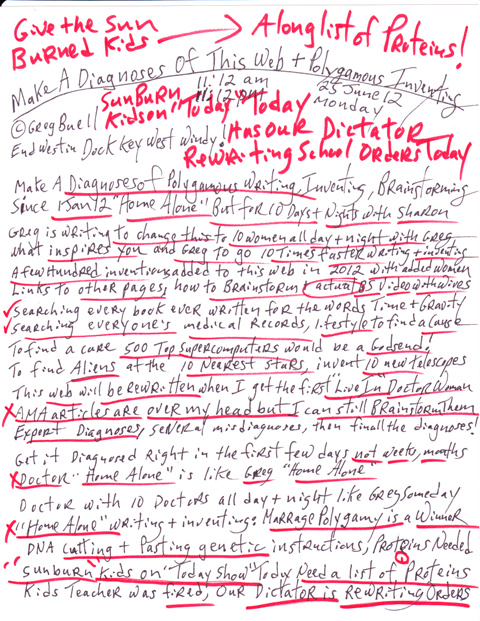 Give the Sun Burned Kids → A long list of Proteins!
Make A Diagnoses of This Web + Polygamous Inventing
11:12 am
25 June 12
Monday
© Greg Buell
Sunburn Kids on "Today" Today
End Westin Dock Key West Windy!
Has our Dictator ReWriting School Orders Today
Make A Diagnoses of Polygamous Writing, Inventing, Brainstorming
Since 1 Jan 12 "Home Alone" But for 10 Days + Nights with Sharon
Greg is writing to change this to 10 women all day + night with Greg
what inspires you and Greg to go 10 Times Faster writing + inventing
A few Hundred inventions added to this web in 2012 with added women
Links to other pages, how to Brainstorm + actual 85 Video with wives
Searching every book ever written for the words Time + Gravity
Searching everyone's medical Records, lifestyle to find a cause
To find a cure 500 Top Supercomputers would be a Godsend!
To find Aliens at the 10 Nearest stars, invent 10 new telescopes
This web will be Rewritten when I get the first Live In Doctor Woman
x AMA articles are over my head but I can still Brainstorm Them
Expert Diagnoses, several misdiagnoses, then finall the diagnoses!
Get it Diagnosed Right in the first few days not weeks, months
x Doctor "Home Alone" is like Greg "Home Alone"
Doctor with 10 Doctors all day + night like Greg someday
x "Home Alone" writing + inventing; Marrage Polygamy is a Winner
DNA cutting + Pasting genetic instructions, Proteins Needed
Sunburn Kids on "Today Show" Today Need a list of Proteins
Kids Teacher was fired, Our Dictator is ReWriting Orders